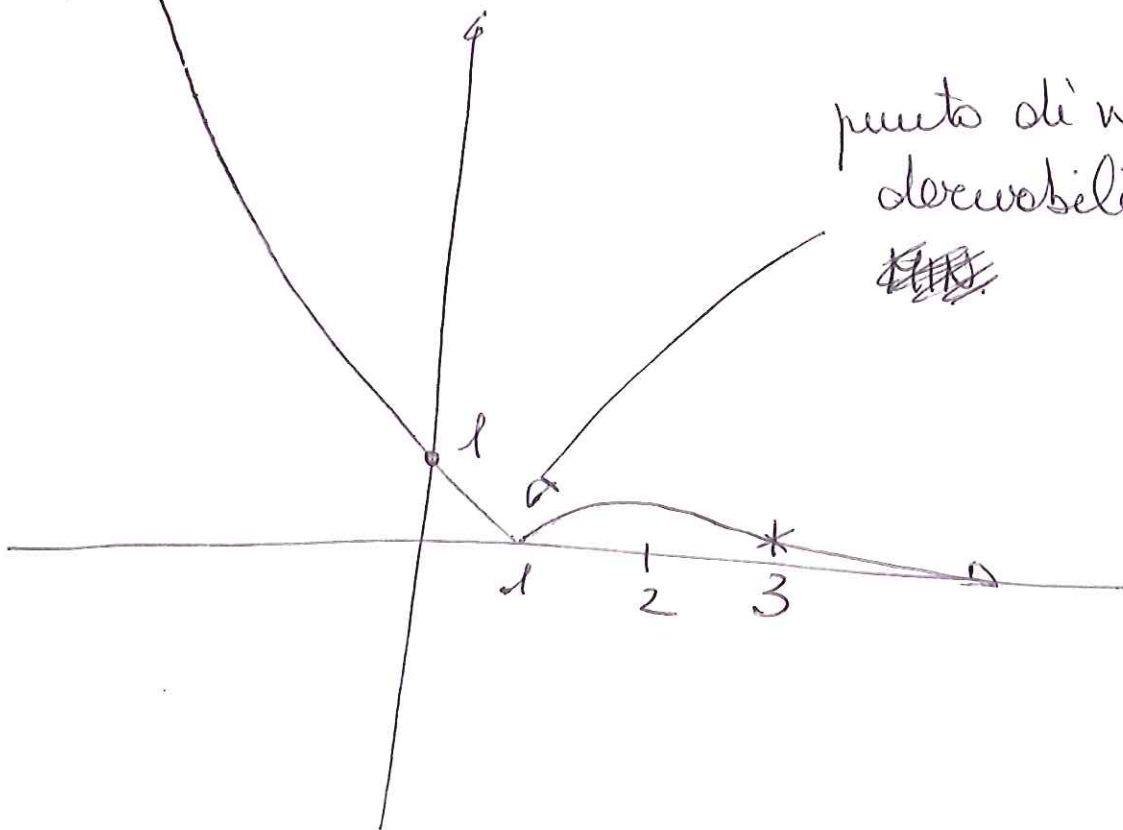 punto di n
derivabili
1
1
2
3